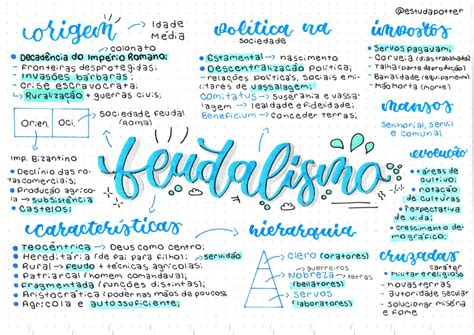 @estudapotter
origem
Idade
Média
colonato
Decadência do Império Romano;
- Fronteiras desprotegidas;
- Invasões bárbaras;
- Crise escravocrata;
Ruralização + guerras civis;
Orien
Oci
Sociedade feudal
(Roma)
Imp. Bizantino
Declínio das ro
tas comerciais;
Produção agríco
la → subsistência
Castelos;
política na
sociedade
Estamental → nascimento
Descentralização política;
relações políticas, sociais e mi
litares de vassalagem;
Comitatus → suserania e vassa
lagem → lealdade e fidelidade;
Beneficium → conceder terras;
impostos
Servos pagavam;
Corveia (dias trabalhados)
Talha (parte da produção)
Banalidade (equipamento)
Mão morta (morte)
mansos
Senhorial, servil
e comunal
feudalismo
evolução
+ áreas de
cultivo;
rotação
de culturas
+ expectativa
de vida;
crescimento de
mográfico;
características
Teocêntrica → Deus como centro;
Hereditária (de pai para filho);
Rural → feudo + técnicas agrícolas;
Patriarcal (homem comandava);
Fragmentada (funções distintas);
Aristocrática (poder nas mãos de poucos);
Agrícola e autossuficiente;
hierarquia
clero (oratores)
guerreiros
Nobreza → terras
(bellatores)
servos
(laboratores)
cruzadas
caráter
militar e religioso
novas terras
novos fiéis